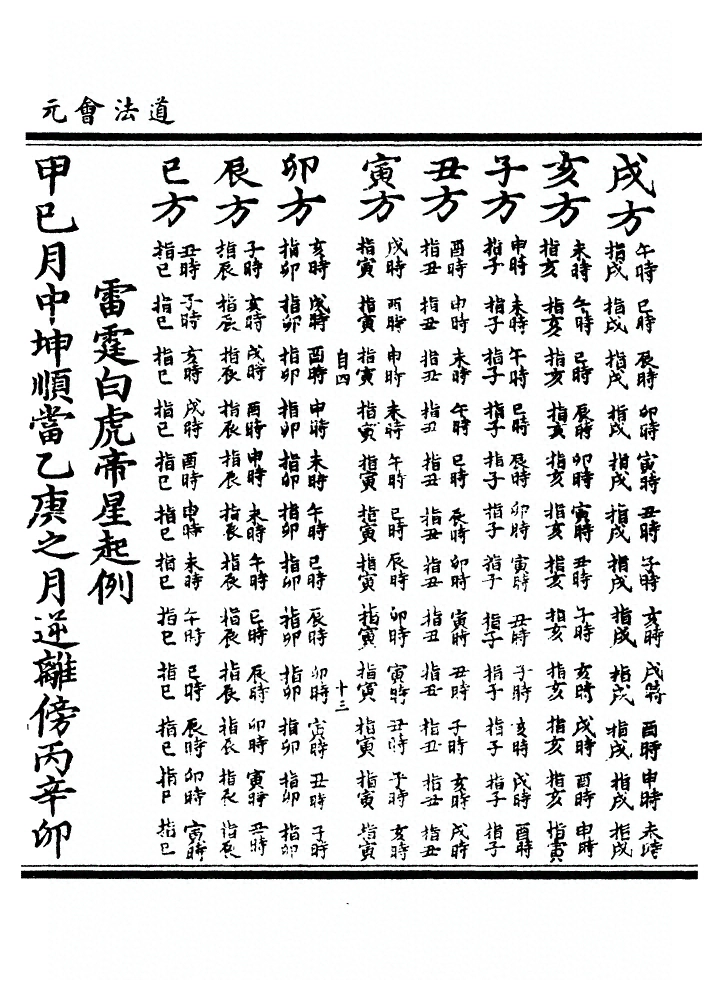 道法會元
戌方 午時指戌 巳時指戌 辰時指戌 卯時指戌 寅時指戌 丑時指戌 子時指戌 亥時指戌 戌時指戌 酉時指戌 申時指戌 未時指戌
亥方 未時指亥 午時指亥 巳時指亥 辰時指亥 卯時指亥 寅時指亥 丑時指亥 子時指亥 亥時指亥 戌時指亥 酉時指亥 申時指寅
子方 申時指子 未時指子 午時指子 巳時指子 辰時指子 卯時指子 寅時指子 丑時指子 子時指子 亥時指子 戌時指子 酉時指子
丑方 酉時指丑 申時指丑 未時指丑 午時指丑 巳時指丑 辰時指丑 卯時指丑 寅時指丑 丑時指丑 子時指丑 亥時指丑 戌時指丑
寅方 戌時指寅 酉時指寅 申時指寅 未時指寅 午時指寅 巳時指寅 辰時指寅 卯時指寅 寅時指寅 丑時指寅 子時指寅 亥時指寅
自四 十三
卯方 亥時指卯 戌時指卯 酉時指卯 申時指卯 未時指卯 午時指卯 巳時指卯 辰時指卯 卯時指卯 寅時指卯 丑時指卯 子時指卯
辰方 子時指辰 亥時指辰 戌時指辰 酉時指辰 申時指辰 未時指辰 午時指辰 巳時指辰 辰時指辰 卯時指辰 寅時指辰 丑時指辰
巳方 丑時指巳 子時指巳 亥時指巳 戌時指巳 酉時指巳 申時指巳 未時指巳 午時指巳 巳時指巳 辰時指巳 卯時指巳 寅時指巳
雷霆白虎帝星起例
甲巳月中坤順當乙庚之月逆離傍丙辛卯